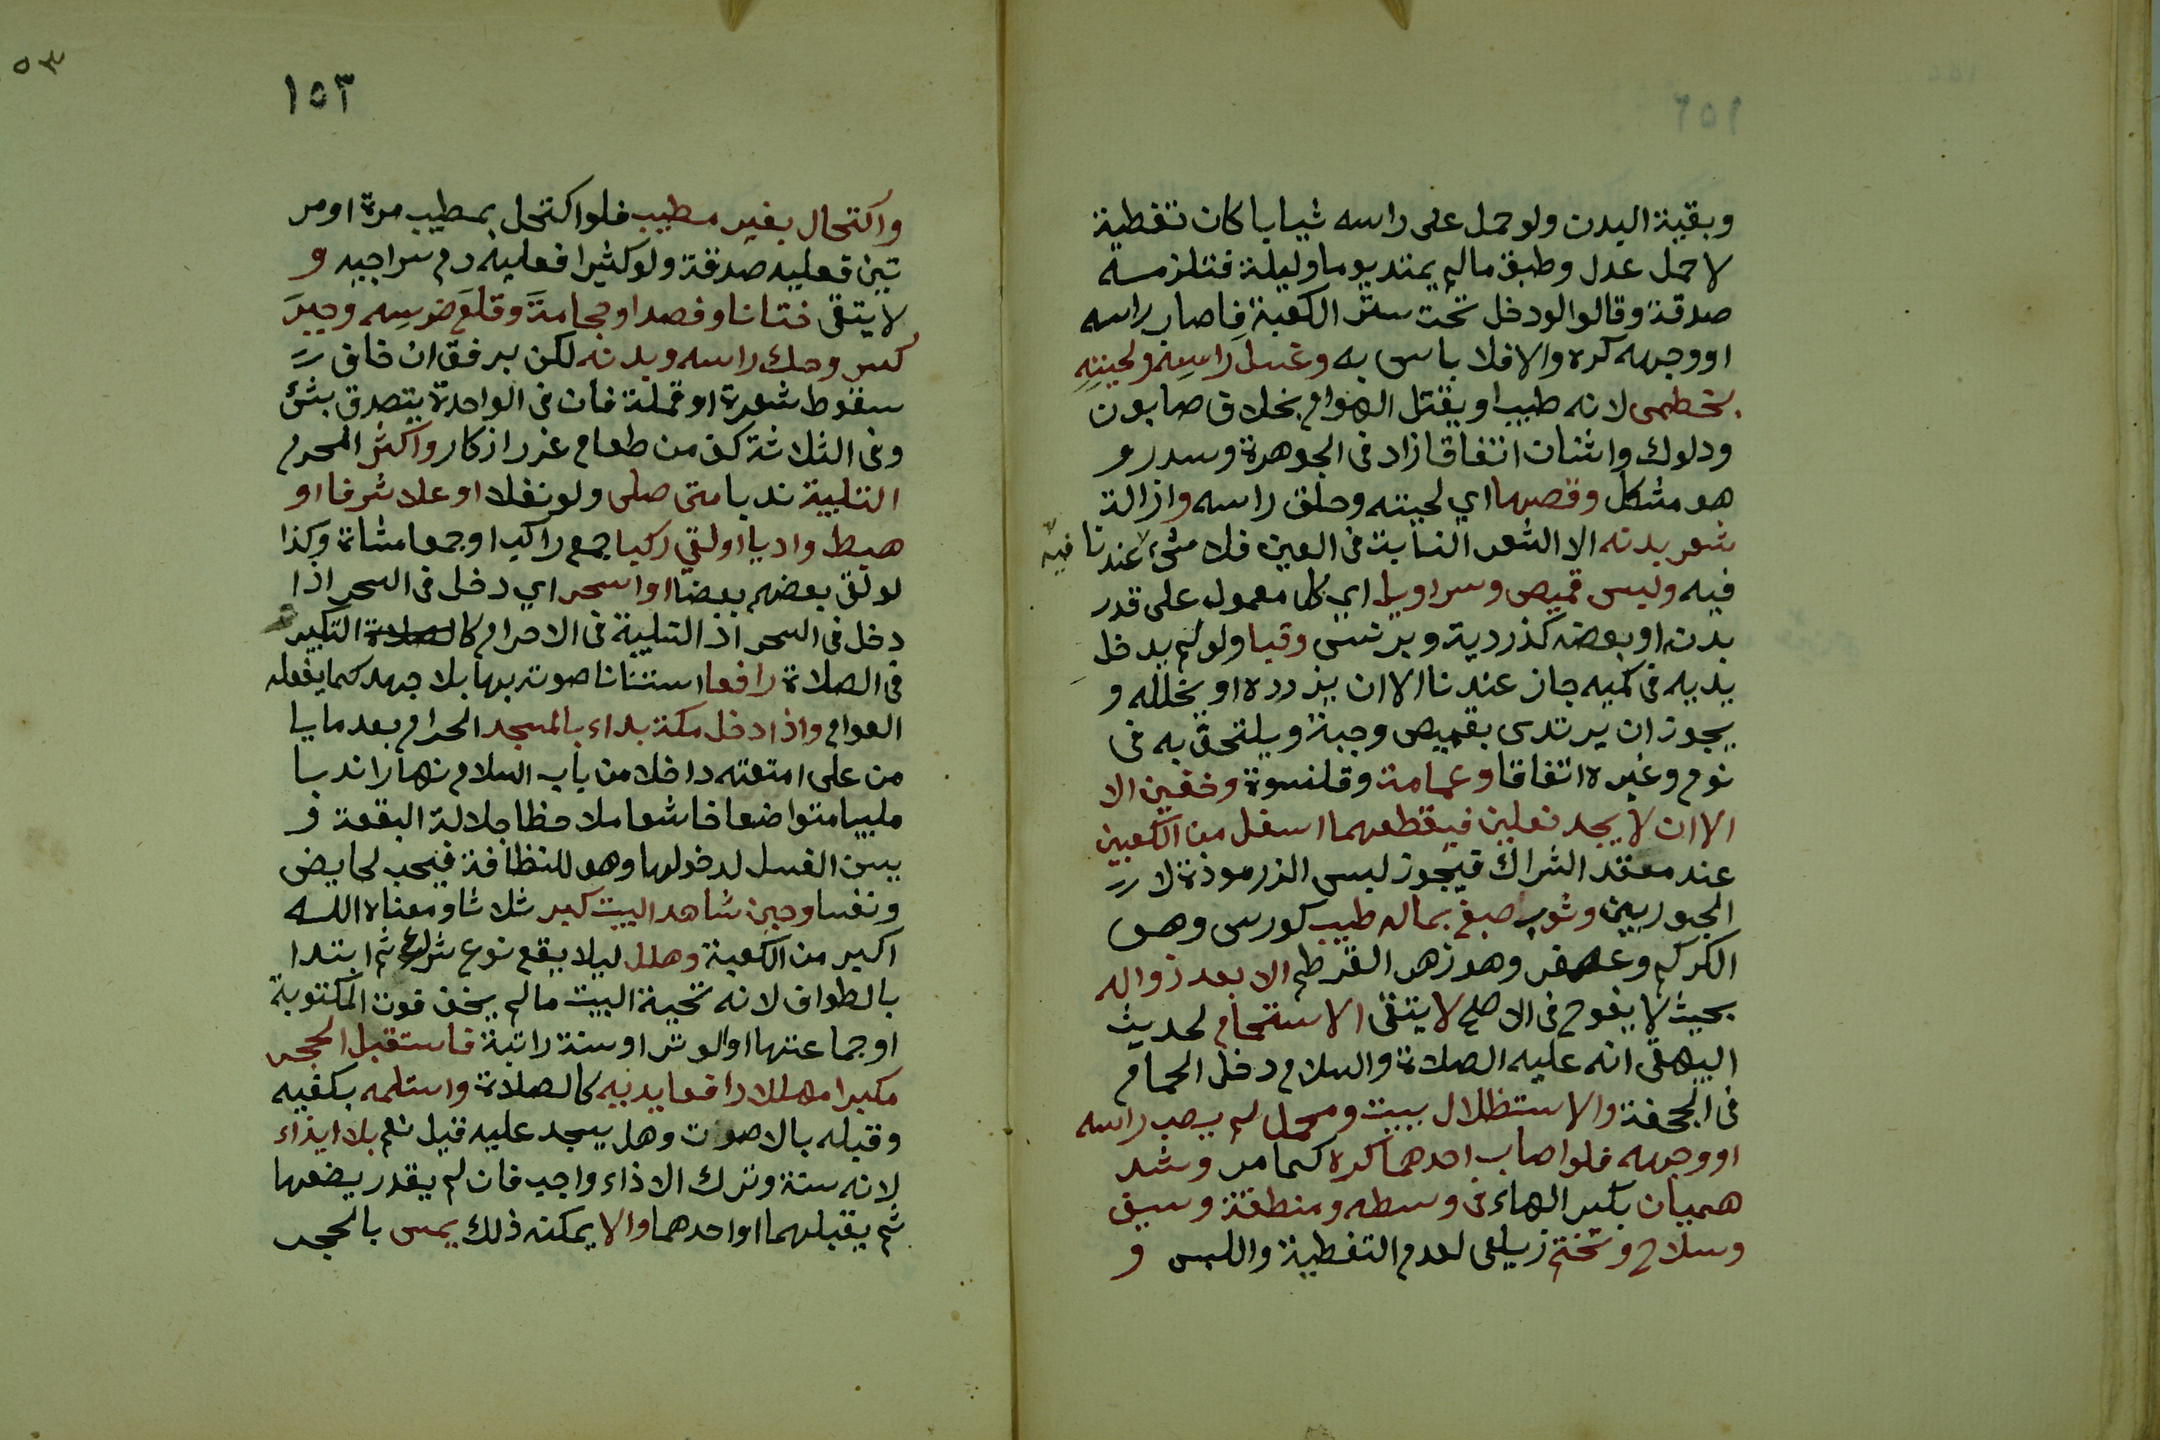 وبقية البدن ولو حمل على راسه ثيابا كان تغطية
لا حمل عدل وطبق مالم يمتد يوما وليلة فتلزمه
صدقة وقالوا لو دخل تحت ستر الكعبة فاصاب راسه
او وجهه كره والا فلا باس به وغسل راسه ولحيته
بخطمى لانه طيب او يقتل الهوام بخلاف صابون
ودلوك واشنان اتفاقا زاد فى الجوهرة وسدر و
هو مشكل وقصها اي لحيته وحلق راسه وازالة
شعر بدنه الا الشعر النابت فى العين فلا شئ عندنا فيه
فيه ولبس قميص وسراويل اي كل معمول على قدر
بدن او بعضه كذردية وبرنس وقبا ولو لم يدخل
يديه فى كميه جاز عندنا الا ان يزرره او يخلله و
يجوز ان يرتدى بقميص وجبة ويلتحق به فى
نوم وغيره اتفاقا وعمامة وقلنسوة وخفين الا
الا ان لا يجد نعلين فيقطعهما اسفل من الكعبين
عند معقد الشراك فيجوز لبس الزرموذة لا
الجوربين وثوب صبغ بماله طيب كورس وهو
الكركم وعصفر وهو زهر القرطم الا بعد زواله
بحيث لا يفوح فى الاصح لا يتقى الاستحمام لحديث
البيهقى انه عليه الصلاة والسلام دخل الحمام
فى الجحفة والاستظلال ببيت ومحمل لم يصب راسه
او وجهه فلو اصاب احدهما كره كما مر وشد
هميان بكسر الهاء فى وسطه ومنطقة وسيف
وسلاح وتختم زيلعى لعدم التغطية واللبس و
١٥٣
واكتحال بغير مطيب فلو اكتحل بمطيب مرة او مر
تين فعليه صدقة ولو كثيرا فعليه دم سراجيه و
لا يتقى ختانا وفصدا وحجامة وقلع ضرسه وجبر
كسر وحك راسه وبدنه لكن برفق ان خاف
سقوط شعرة او قملة فان فى الواحدة يتصدق بشئ
وفى الثلاثة كف من طعام غرر اذكار واكثر المحرم
التلبية ندبا متى صلى ولو نفلا او علا شرفا او
هبط واديا او لقي ركبا جمع راكب او جمعا مشاة وكذا
لو لقى بعضهم بعضا او اسحر اي دخل فى السحر اذا
دخل فى السحر اذ التلبية فى الاحرام كالصلاة التكبير
فى الصلاة رافعا استنانا صوته بها بلا جهد كما يفعله
العوام واذا دخل مكة بداء بالمسجد الحرام بعد ما يا
من على امتعته داخلا من باب السلام نهارا ندبا
ملبيا متواضعا خاشعا ملاحظا جلالة البقعة و
يسن الغسل لدخولها وهو للنظافة فيحب لحايض
ونفسا وحين شاهد البيت كبر ثلاثا ومعناه الله
اكبر من الكعبة وهلل ليلا يقع نوع شرك ثم ابتدا
بالطواف لانه تحية البيت مالم يخف فوت المكتوبة
او جماعتها او الوتر او سنة راتبة فاستقبل الحجر
مكبرا مهللا رافعا يديه كالصلاة واستلمه بكفيه
وقبله بلا صوت وهل يسجد عليه قيل نعم بلا ايذاء
لانه سنة وترك الاذاء واجب فان لم يقدر يضعها
ثم يقبلهما او احدهما والا يمكنه ذلك يمس بالحجر